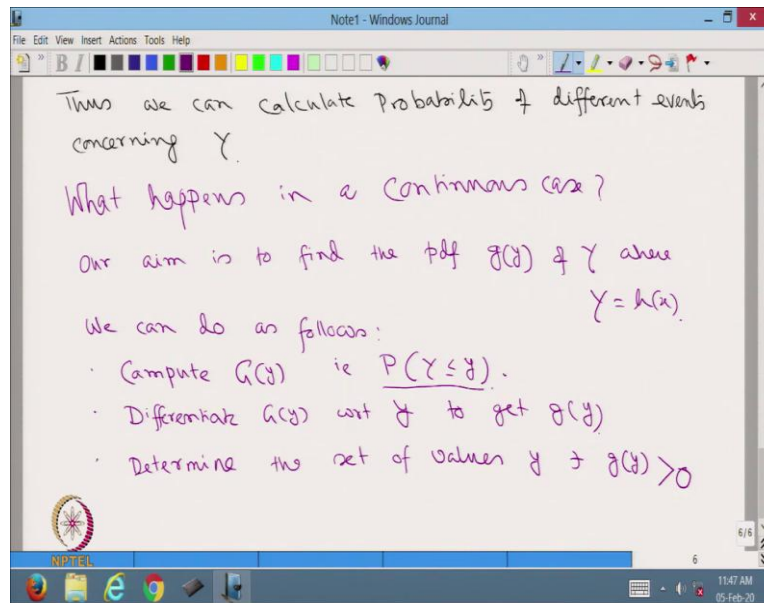 Note1 - Windows Journal
File Edit View Insert Actions Tools Help
B I
Thus we can calculate Probability of different events
concerning Y
What happens in a continuous case?
Our aim is to find the pdf g(y) of Y where
Y = h(x)
We can do as follows:
· Compute G(y) ie P(Y ≤ y).
· Differentiate G(y) wrt y to get g(y)
· Determine the set of values y ∋ g(y) > 0
6/6
NPTEL
6
11:47 AM
05-Feb-20